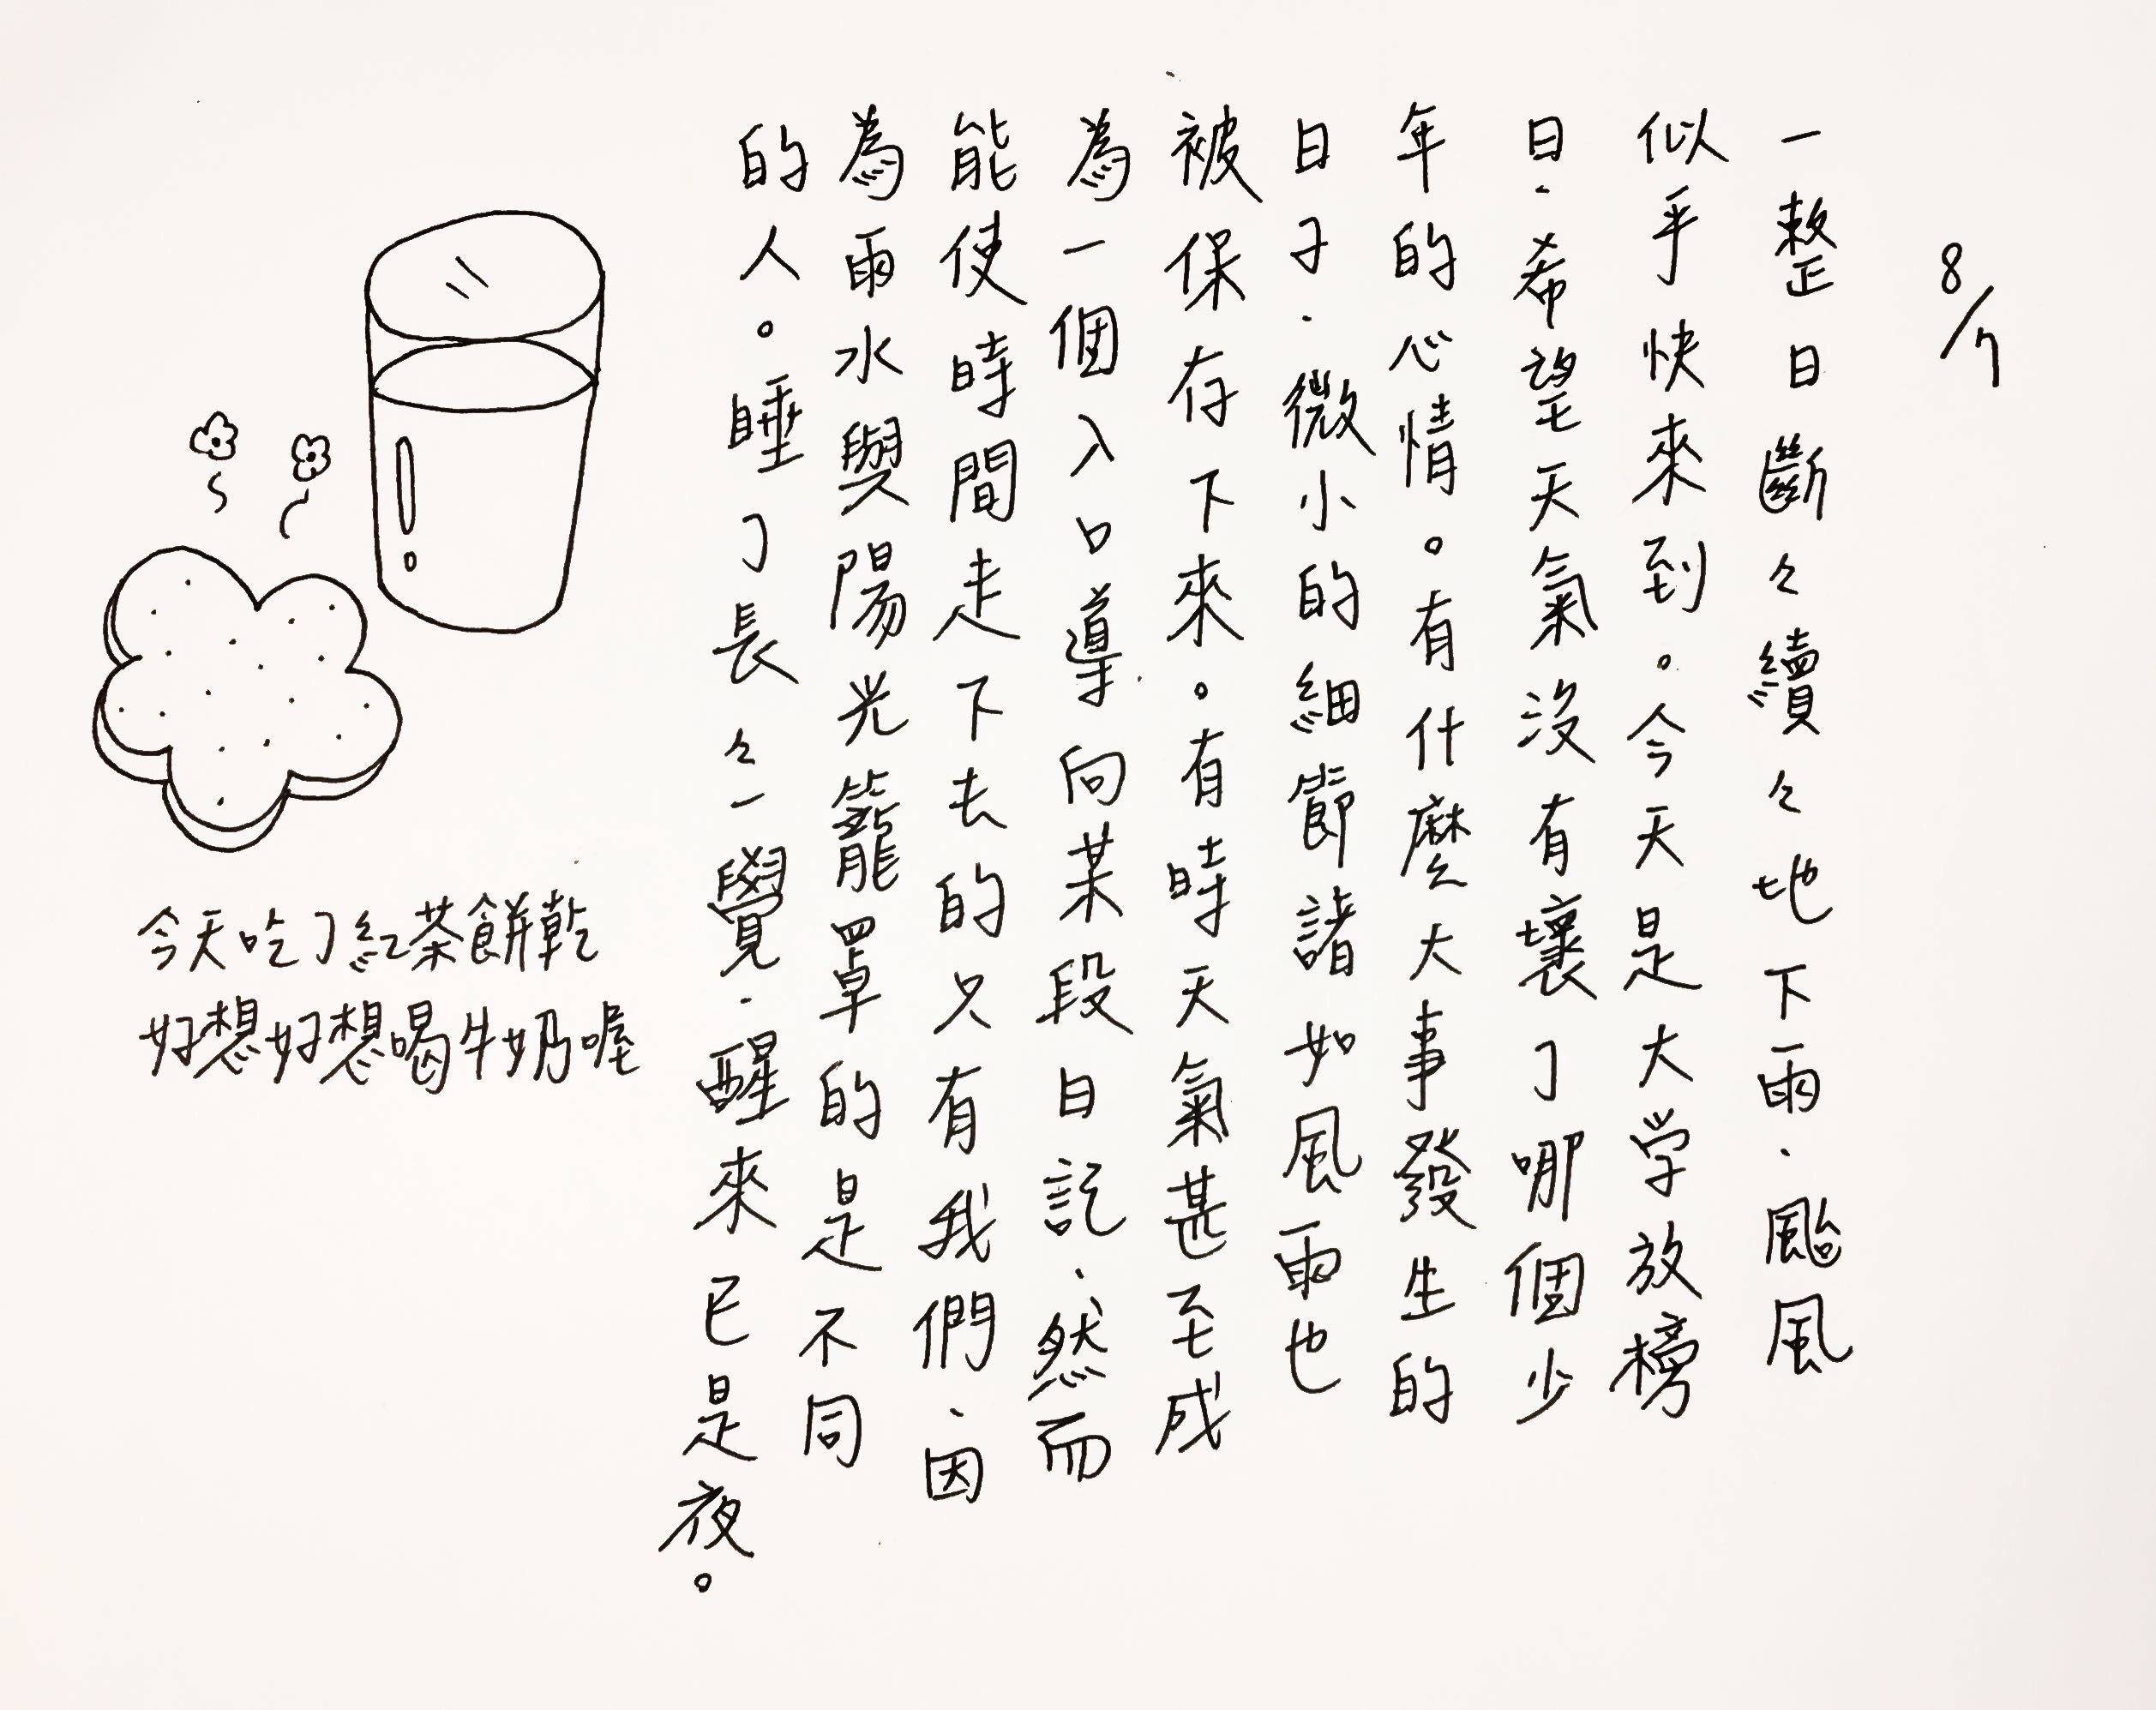 8/7
一整日斷々續々地下雨．颱風
似乎快來到。今天是大学放榜
日．希望天氣沒有壞了哪個少
年的心情。有什麼大事發生的
日子．微小的細節諸如風雨也
被保存下來。有時天氣甚至成
為一個入口導向某段日記．然而
能使時間走下去的只有我們．因
為雨水與陽光籠罩的是不同
的人。睡了長々一覺．醒來已是夜。
今天吃了紅茶餅乾
好想好想喝牛奶喔